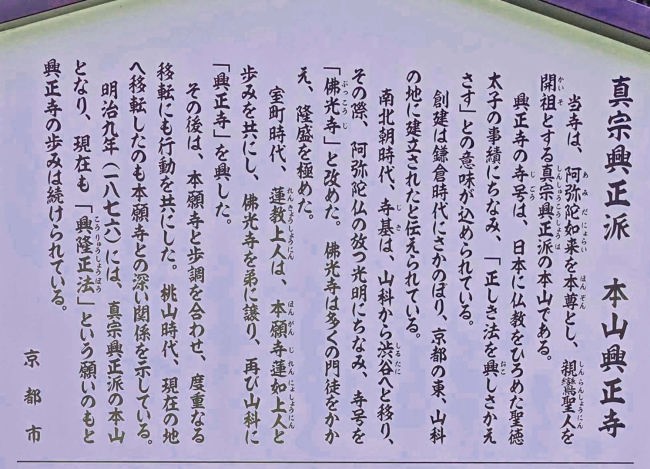 真宗興正派　本山興正寺
当寺は、阿弥陀如来を本尊とし、親鸞聖人を
開祖とする真宗興正派の本山である。
興正寺の寺号は、日本に仏教をひろめた聖徳
太子の事績にちなみ、「正しき法を興しさかえ
さす」との意味が込められている。
創建は鎌倉時代にさかのぼり、京都の東、山科
の地に建立されたと伝えられている。
南北朝時代、寺基は、山科から渋谷へと移り、
その際、阿弥陀仏の放つ光明にちなみ、寺号を
「佛光寺」と改めた。佛光寺は多くの門徒をかか
え、隆盛を極めた。
室町時代、蓮教上人は、本願寺蓮如上人と
歩みを共にし、佛光寺を弟に譲り、再び山科に
「興正寺」を興した。
その後は、本願寺と歩調を合わせ、度重なる
移転にも行動を共にした。桃山時代、現在の地
へ移転したのも本願寺との深い関係を示している。
明治九年（一八七六）には、真宗興正派の本山
となり、現在も「興隆正法」という願いのもと
興正寺の歩みは続けられている。
京都市